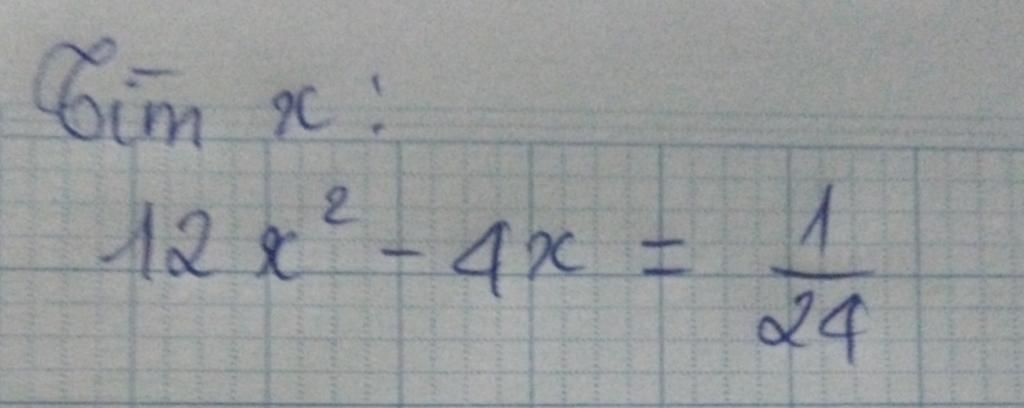 Tìm x:
12x² - 4x = 1/24